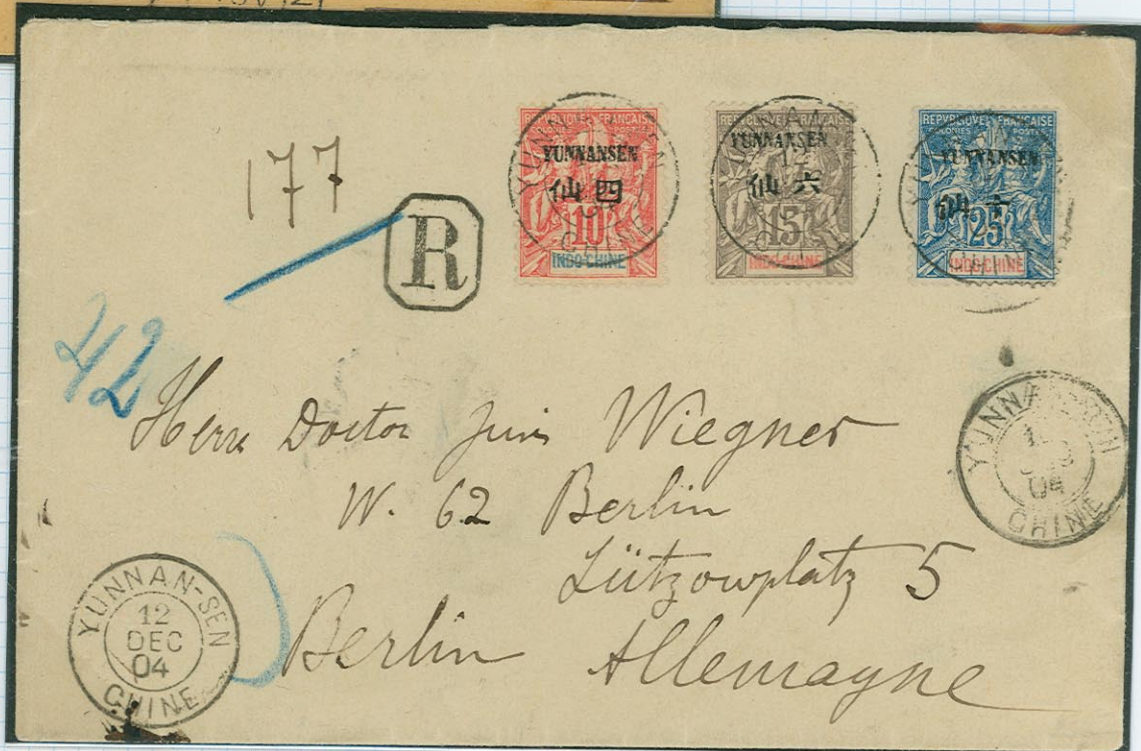 177
R
42
REPVBLIQVE FRANÇAISE
COLONIES POSTES
YUNNANSEN
仙四
10
INDO-CHINE
REPVBLIQVE FRANÇAISE
COLONIES POSTES
YUNNANSEN
仙六
15
INDO-CHINE
REPVBLIQVE FRANÇAISE
COLONIES POSTES
YUNNANSEN
仙十
25
INDO-CHINE
Herrn Doctor Wiegner
W. 62 Berlin
Lützowplatz 5
Berlin
Allemagne
YUNNAN-SEN
12
DEC
04
CHINE
04
CHINE